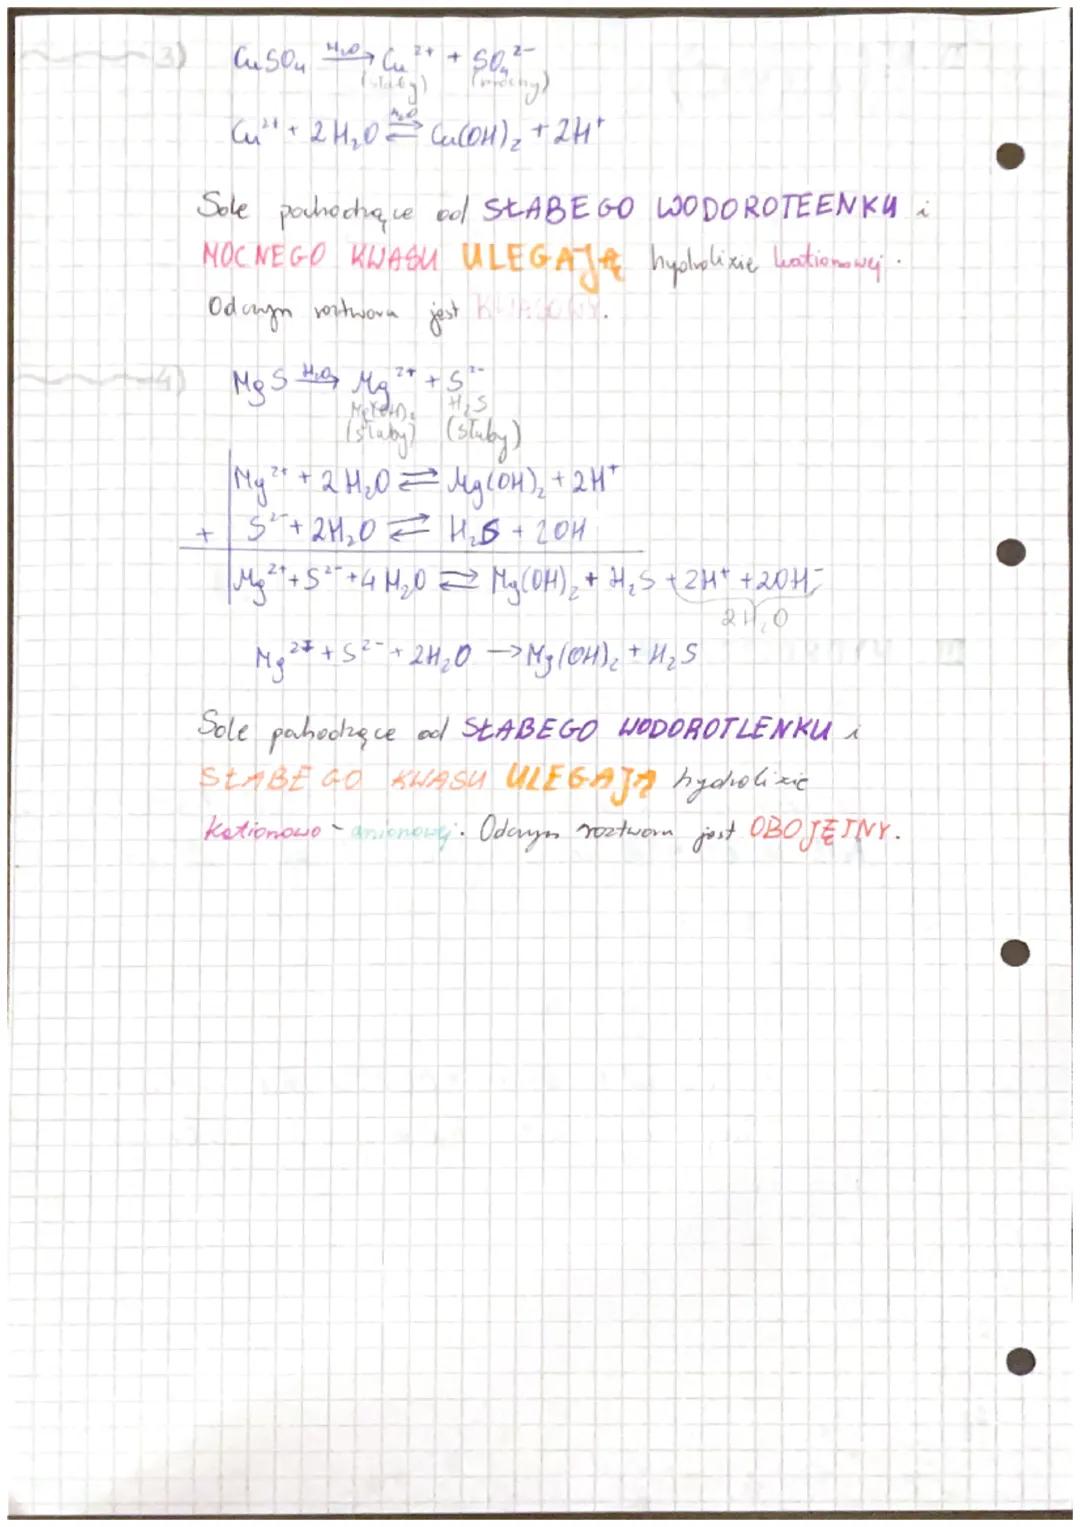 3) CuSO₄ —H₂O→ Cu²⁺ + SO₄²⁻
(słaby) (mocny)
Cu²⁺ + 2H₂O ⇌ Cu(OH)₂ + 2H⁺
H₂O
Sole pochodzące od SŁABEGO WODOROTEENKU i
MOCNEGO KWASU ULEGAJĄ hydrolizie kationowej.
Odczyn roztworu jest KWASOWY.
4) MgS —H₂O→ Mg²⁺ + S²⁻
Mg(OH)₂ H₂S
(słaby) (słaby)
Mg²⁺ + 2H₂O ⇌ Mg(OH)₂ + 2H⁺
+ S²⁻ + 2H₂O ⇌ H₂S + 2OH
Mg²⁺ + S²⁻ + 4H₂O ⇌ Mg(OH)₂ + H₂S + 2H⁺ + 2OH⁻
2H₂O
Mg²⁺ + S²⁻ + 2H₂O → Mg(OH)₂ + H₂S
Sole pahodzące od SŁABEGO WODOROTLENKU i
SŁABEGO KWASU ULEGAJĄ hydrolizie
kationowo - anionowej. Odczyn roztworu jest OBOJĘTNY.